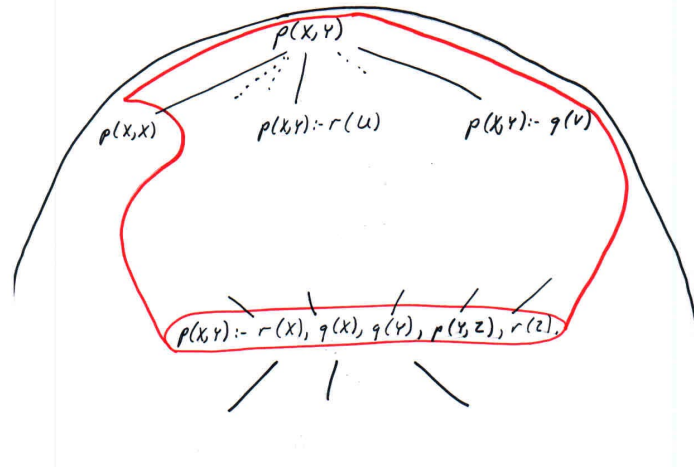 p(X,Y)
p(X,X)
p(X,Y):- r(U)
p(X,Y):- q(V)
p(X,Y):- r(X), q(X), q(Y), p(Y,Z), r(Z).